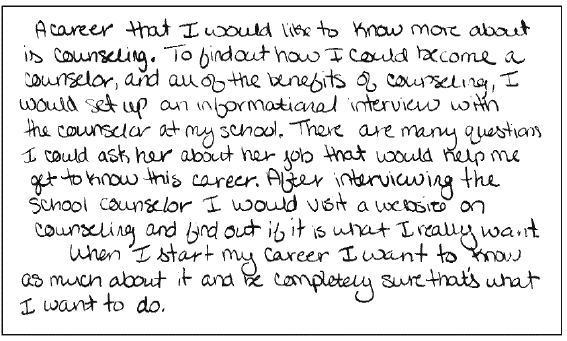 A career that I would like to know more about
is counseling. To find out how I could become a
counselor, and all of the benefits of counseling, I
would set up an informational interview with
the counselor at my school. There are many questions
I could ask her about her job that would help me
get to know this career. After interviewing the
school counselor I would visit a website on
counseling and find out if it is what I really want
When I start my career I want to know
as much about it and be completely sure that's what
I want to do.